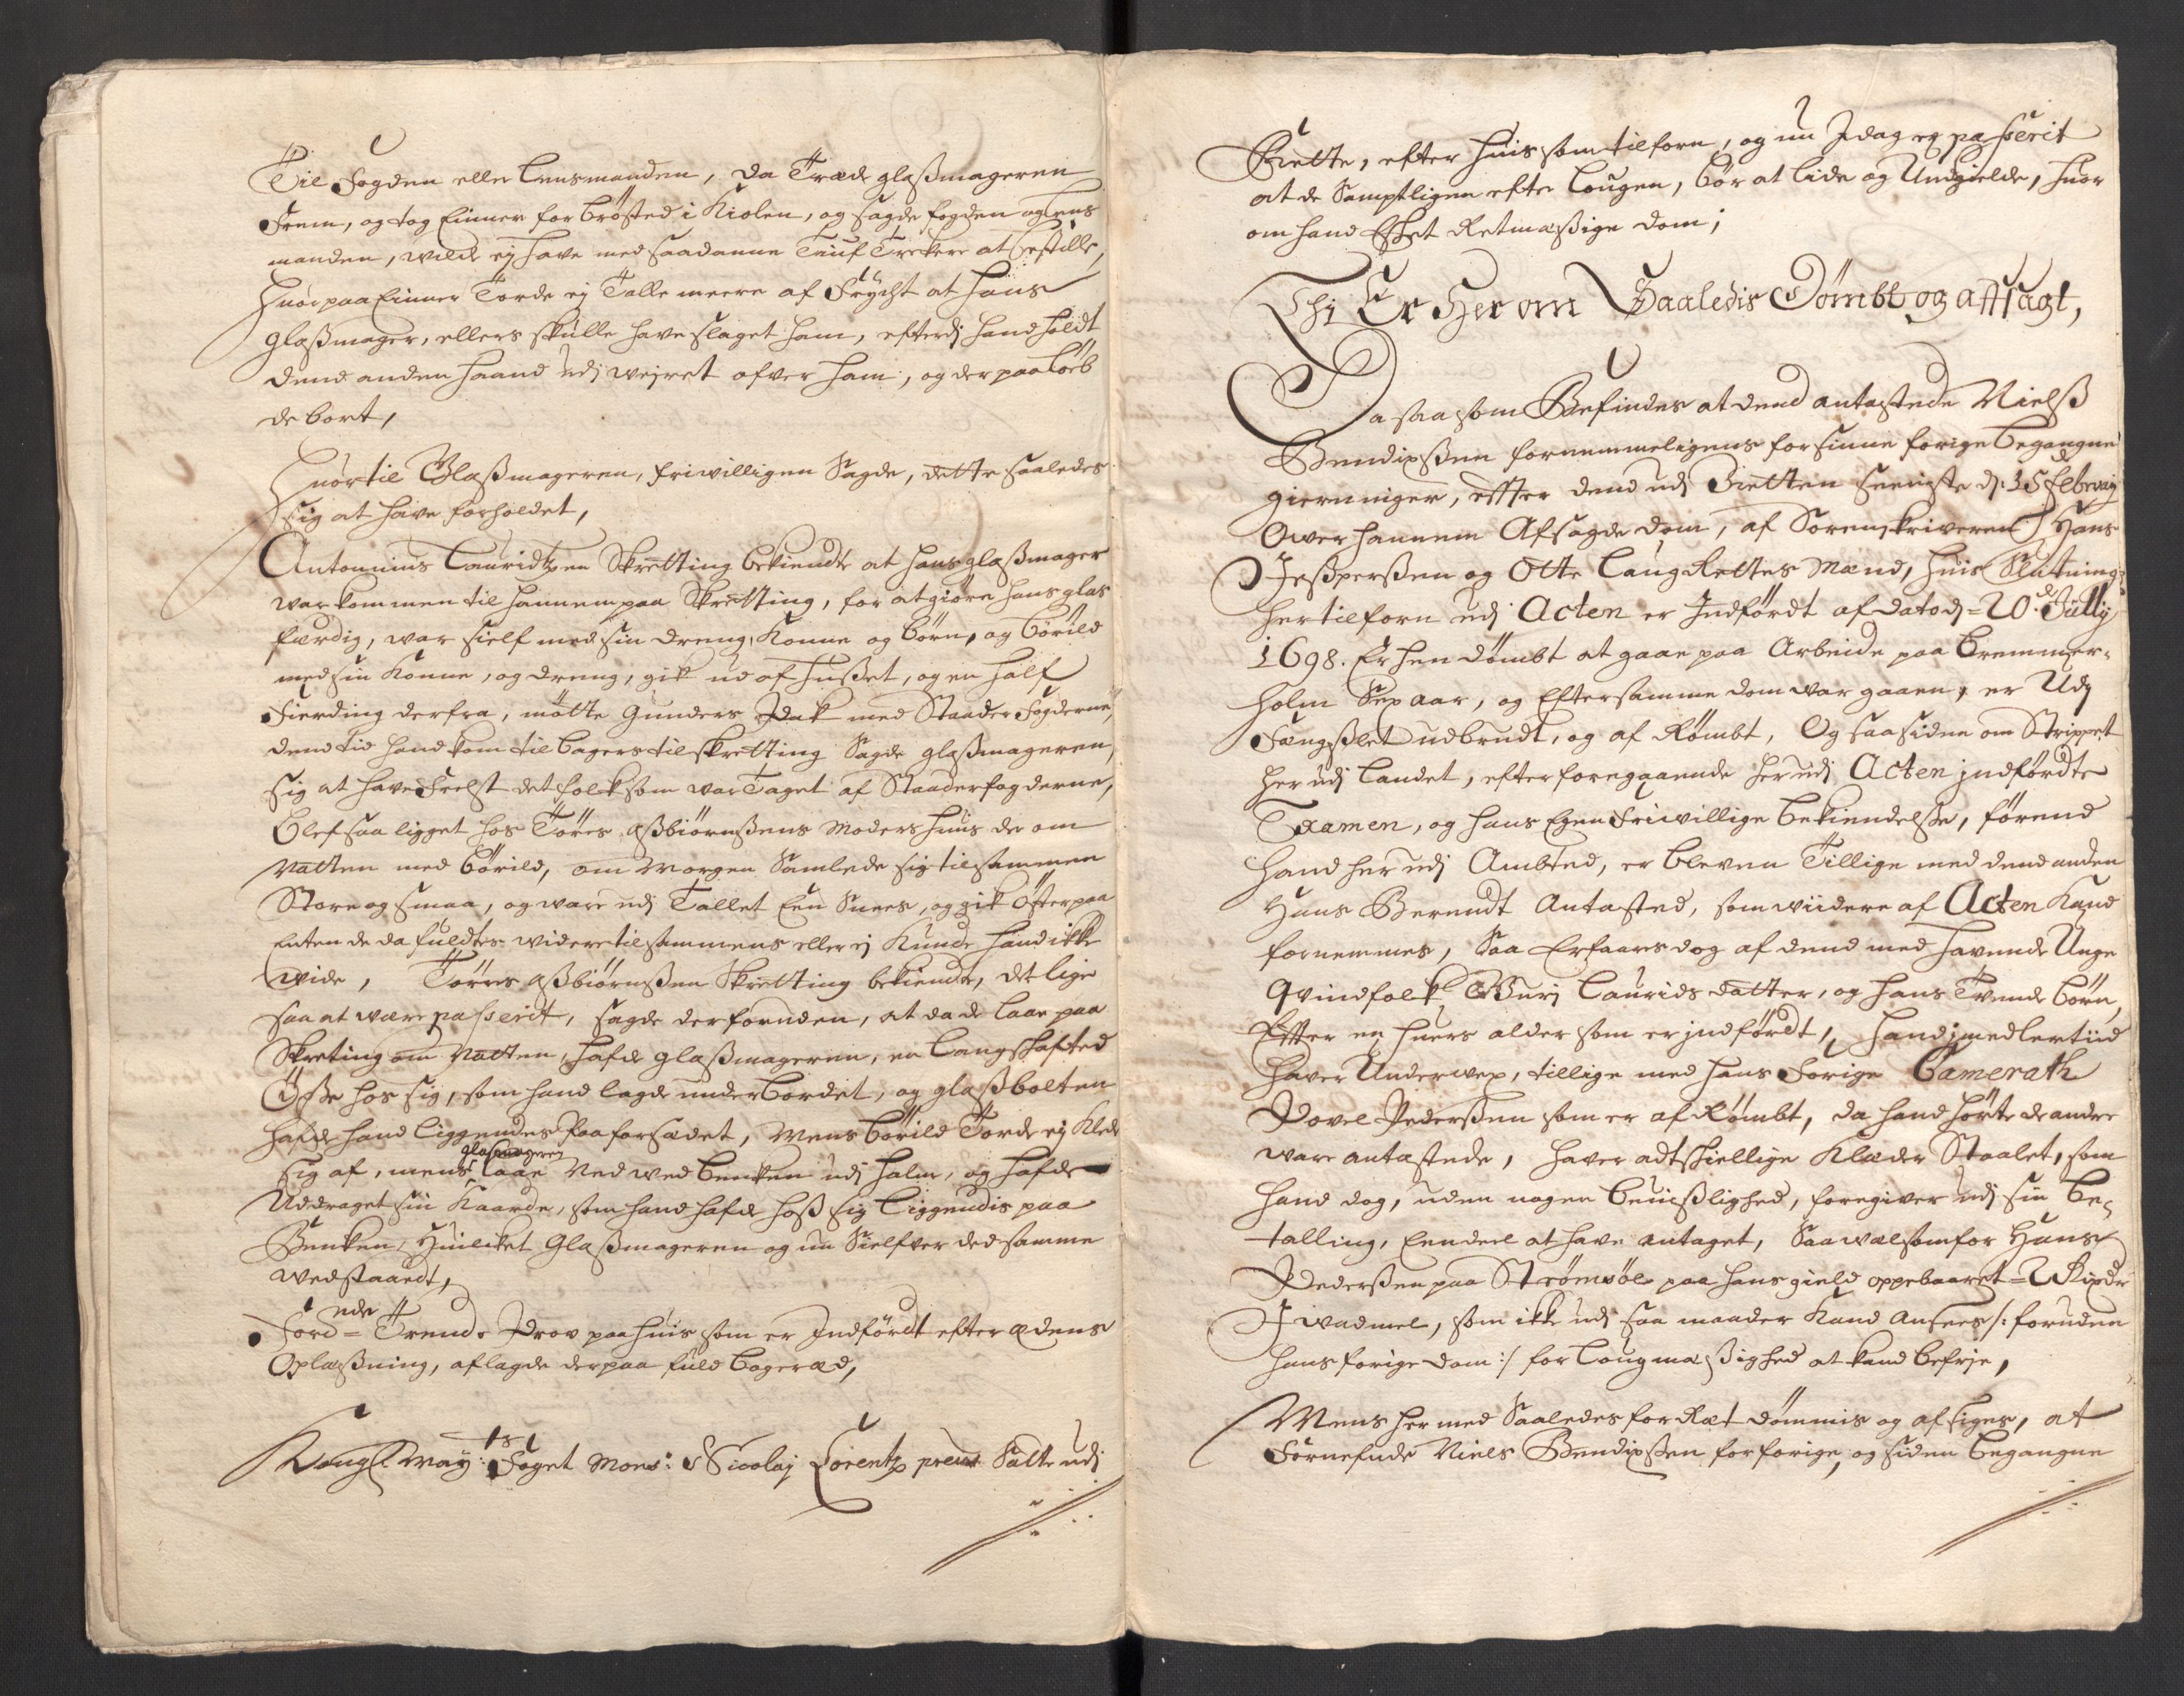 Til Fogden eller Lensmanden, da Træde glaßmageren
Frem, og tog Einner for brösted i Kiolen, og sagde fogden og lens
manden, wilde ej have med saadanne Tiuf Trekere at bestille,
Huorpaa Einner Torde ej Talle meere af Frycht at Hans
glaßmager, ellers skulle have slaget ham, efterdj hand holdt
dend anden haand udj wejret ofver ham, og der paa Löeb
de bort,
Huortil Glaßmageren, friwilligen Sagde, dette saaledes
sig at have forholdet,
Antonnius Lauridtzen Skretting bekiendte at hans glaßmager
war kommen til hannem paa Skretting, for at giöre hans glas
færdig, war sielf med sin dreng, Konne og börn, og börild
med sin Konne, og dreng, gik ud af Hußet, og en half
Fierding derfra, mötte Gunders Jsak med Staader Fogderne,
dend tid hand kom tilbagers til skretting Sagde glaßmageren,
sig at have Frelst det folck som war Taget af Staaderfogderne,
blef saa ligget hos Törres aßbiörnßens Moders Huus de om
Natten med börild, om Morgen Samlede sig tilsammen
Store og smaa, og ware udj Tallet Een Snees, og gik Öster paa
Enten de da fuldtes widere tilsammens eller ej Kunde hand ikke
wide, Törres aßbiörnßen Skretting bekiende, det lige
saa at være passerit, sagde der foruden, at da de laae paa
Skreting om Natten, hafde glaßmageren, en langskafted
Öxse hos sig, som hand lagde under bordet, og glaßbolten
hafde hand liggendes paa forsædet, Mens börild Torde ej Klæde
glasmageren
sig af, mens laae Ned wed benken udj halm, og hafde
Uddraget sin Kaarde, som hand hafde hoß sig liggendis paa
Benken, Huilcket Glaßmageren og nu Sielfver ded samme
wedstaaedt,
nde
Ford= Trende Prov paa huis som er Indfördt efter ædens
Oplæßning, aflagde derpaa fuld boger æd,
Kongl. May:ts Foget Mons: Nicolaj Lorentz preus Satte udj
Rette, efter huis som tilforn, og nu Jdag er passerit
at de Samptligen efter Lougen, bör at lide og Undgielde, huor
om hand Esket Retmæßige dom;
Thj Er Her om Saaledis Dömbt og affsagt,
Da saa som Befindes at dend antastede Nielß
Bendixßen fornemmeligens for sinne forige begangne
gierninger, effter dend udj Retten seeniste dj: 15 Februarij
Over hannem Afsagde dom, af Sorenskriveren Hans
Jeßperßen og Otte LaugRettes Mænd, huis Slutning
her tilforn udj Acten er Indfördt af dato dj= 20de Jullij
1698. Er hen dömbt at gaae paa Arbeide paa Bremmer-
holm Sex aar, og Efter samme dom war gaaen, er Udj
Fængßlet udbrudt, og af Römbt, Og saa siden om Strippet
her udj landet, efter foregaaende her udj Acten jndfördte
Examen, og hans Egen Friwillige bekiendelße, förend
hand her udj Ambted, er bleven Tillige med dend anden
Hans Berendt Antasted, som wiidere af Acten Kand
fornemmes, Saa Erfaares dog af dend med havende Unge
Qvindfolk Guri Laurids datter, og hans Tvende börn,
Effter en huers alder som er jndfördt, hand jmedlertiid
haver Underwex, tillige med hans Forige Camerath
Povel Pederßen som er af Römbt, da hand hörte de andre
ware antastede, haver adtskiellige Klæder Staalet, som
hand dog, uden nogen beuißlighed, foregiver udj sin be-
talling, Eendeel at have antaget, Saa wæl som for Hans
Pederßen paa Strömsöe paa hans gield oppebaaret= 2 Rixdr
I wadmel, som ikke udj saa maader Kand ansees /: foruden
hans forige dom :/ for Lougmæßighed at kand befrie,
Mens her med Saaledes for Ræt dömmis og af siges, at
Fornefnde Niels Bendixßen for forige, og siden begangne